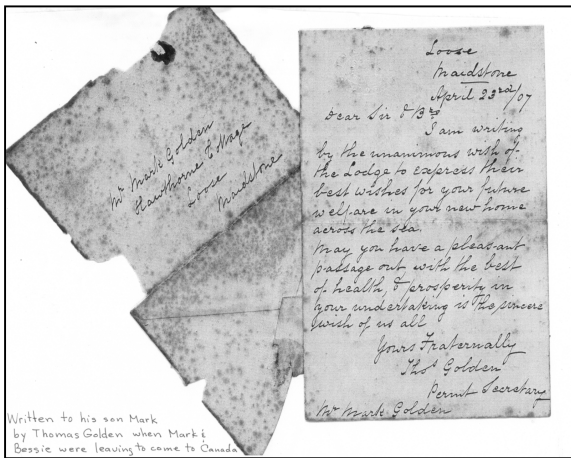 Mr Mark Golden
Hawthorne Cottage
Loose
Maidstone
Loose
Maidstone
April 23rd/07
Dear Sir & Bro
I am writing
by the unanimous wish of
the Lodge to express their
best wishes for your future
welfare in your new home
across the sea.
May you have a pleasant
passage out with the best
of health, & prosperity in
your undertaking is the sincere
wish of us all
Yours Fraternally
Thos Golden
Permt Secretary
Mr Mark Golden
Written to his son Mark
by Thomas Golden when Mark &
Bessie were leaving to come to Canada